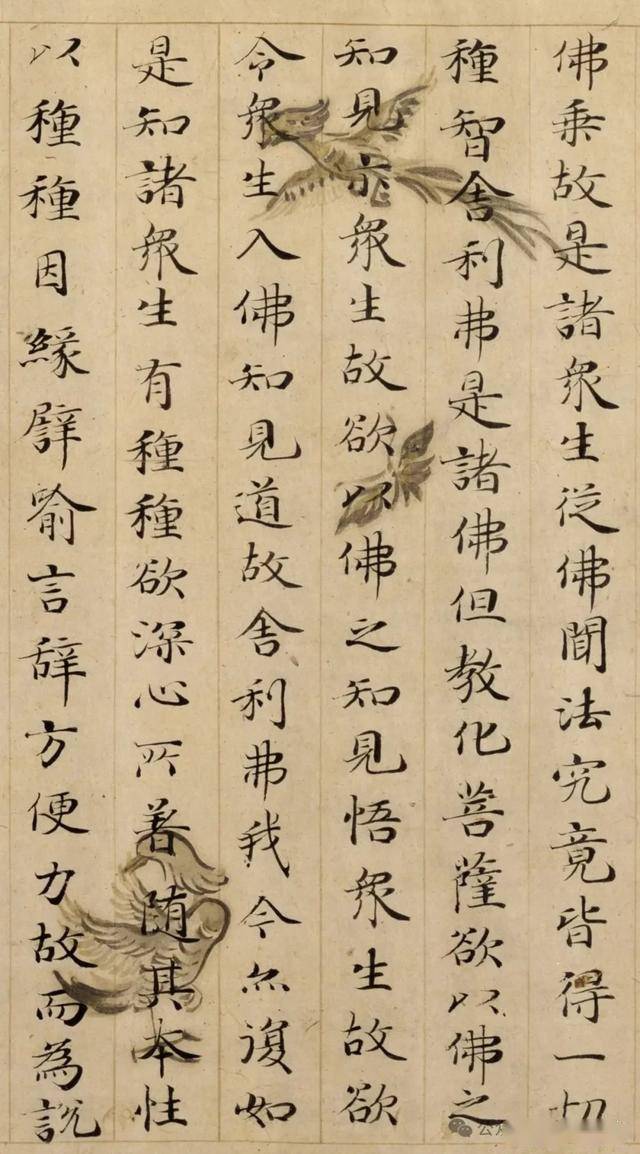 佛乗故是諸衆生従佛聞法究竟皆得一切
種智舎利弗是諸佛但教化菩薩欲以佛之
知見示衆生故欲以佛之知見悟衆生故欲
令衆生入佛知見道故舎利弗我今亦復如
是知諸衆生有種種欲深心所著随其本性
以種種因縁譬喻言辞方便力故而為説